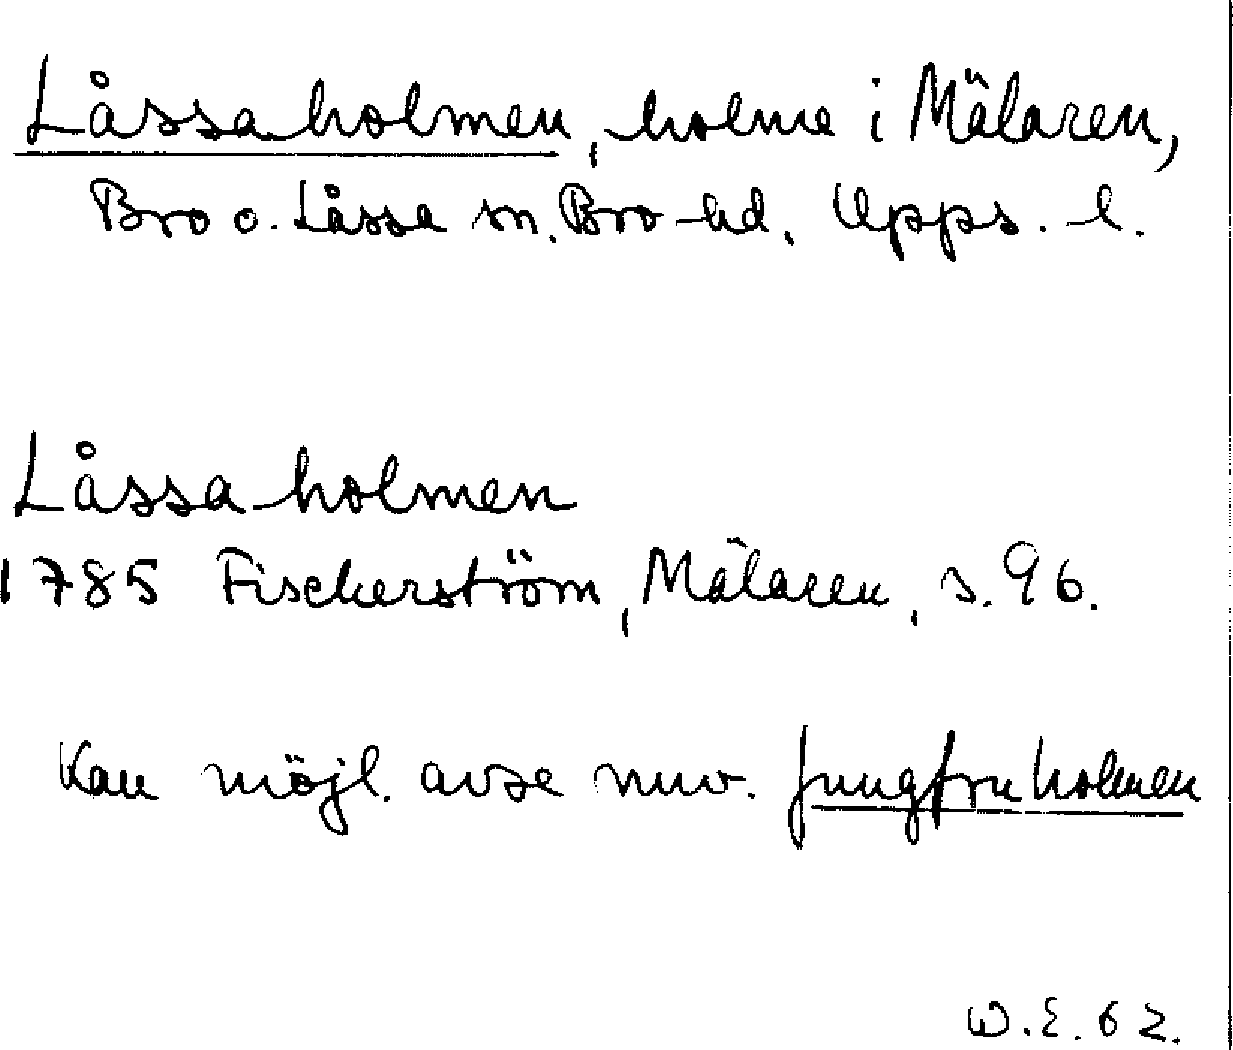 Låssaholmen, holme i Mälaren,
Bro o. Låssa sn. Bro hd. Upps. l.
Låssaholmen
1785 Fischerström, Mälaren, s. 96.
Kan möjl. avse nuv. Jungfruholmen
W.E. 62.